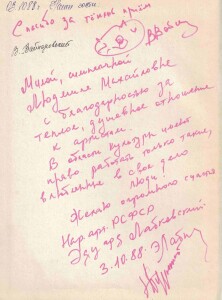 Спасибо за тёплый приём
Милой, симпатичной
Людмиле Михайловне
с благодарностью за
теплое, душевное отношение
к артистам.
В области культуры имеют
право работать только такие,
влюбленные в свое дело
люди!
Желаю огромного счастья
Нар. арт. РСФСР
Эдуард
3.10.88.